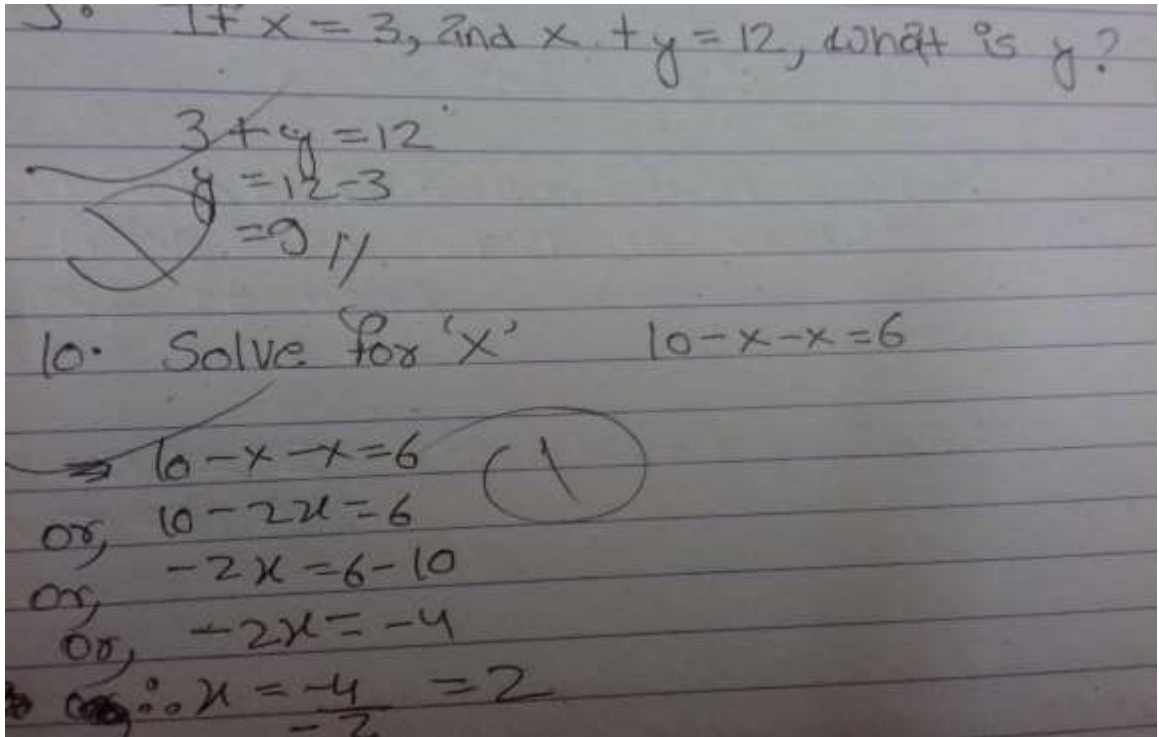 If x = 3, and x + y = 12, what is y?
3 + y = 12
y = 12 - 3
= 9 //
10. Solve for 'x' 10 - x - x = 6
⇒ 10 - x - x = 6
or, 10 - 2x = 6
or, -2x = 6 - 10
or, -2x = -4
∴ x = -4/-2 = 2
1